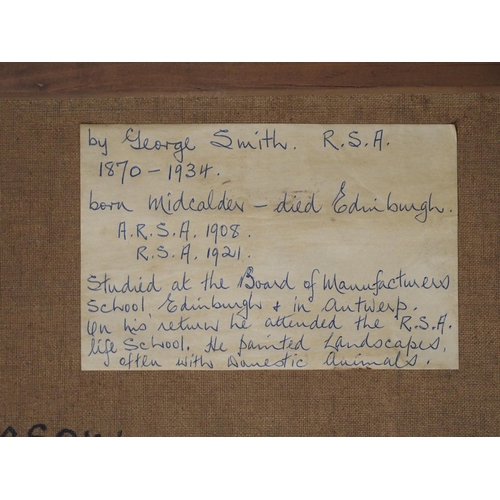 by George Smith. R.S.A.
1870 - 1934.
born Midcalder - died Edinburgh.
A.R.S.A. 1908.
R.S.A. 1921.
Studied at the Board of Manufacturers
School, Edinburgh & in Antwerp.
On his return he attended the R.S.A.
life School. He painted Landscapes,
often with Domestic Animals.